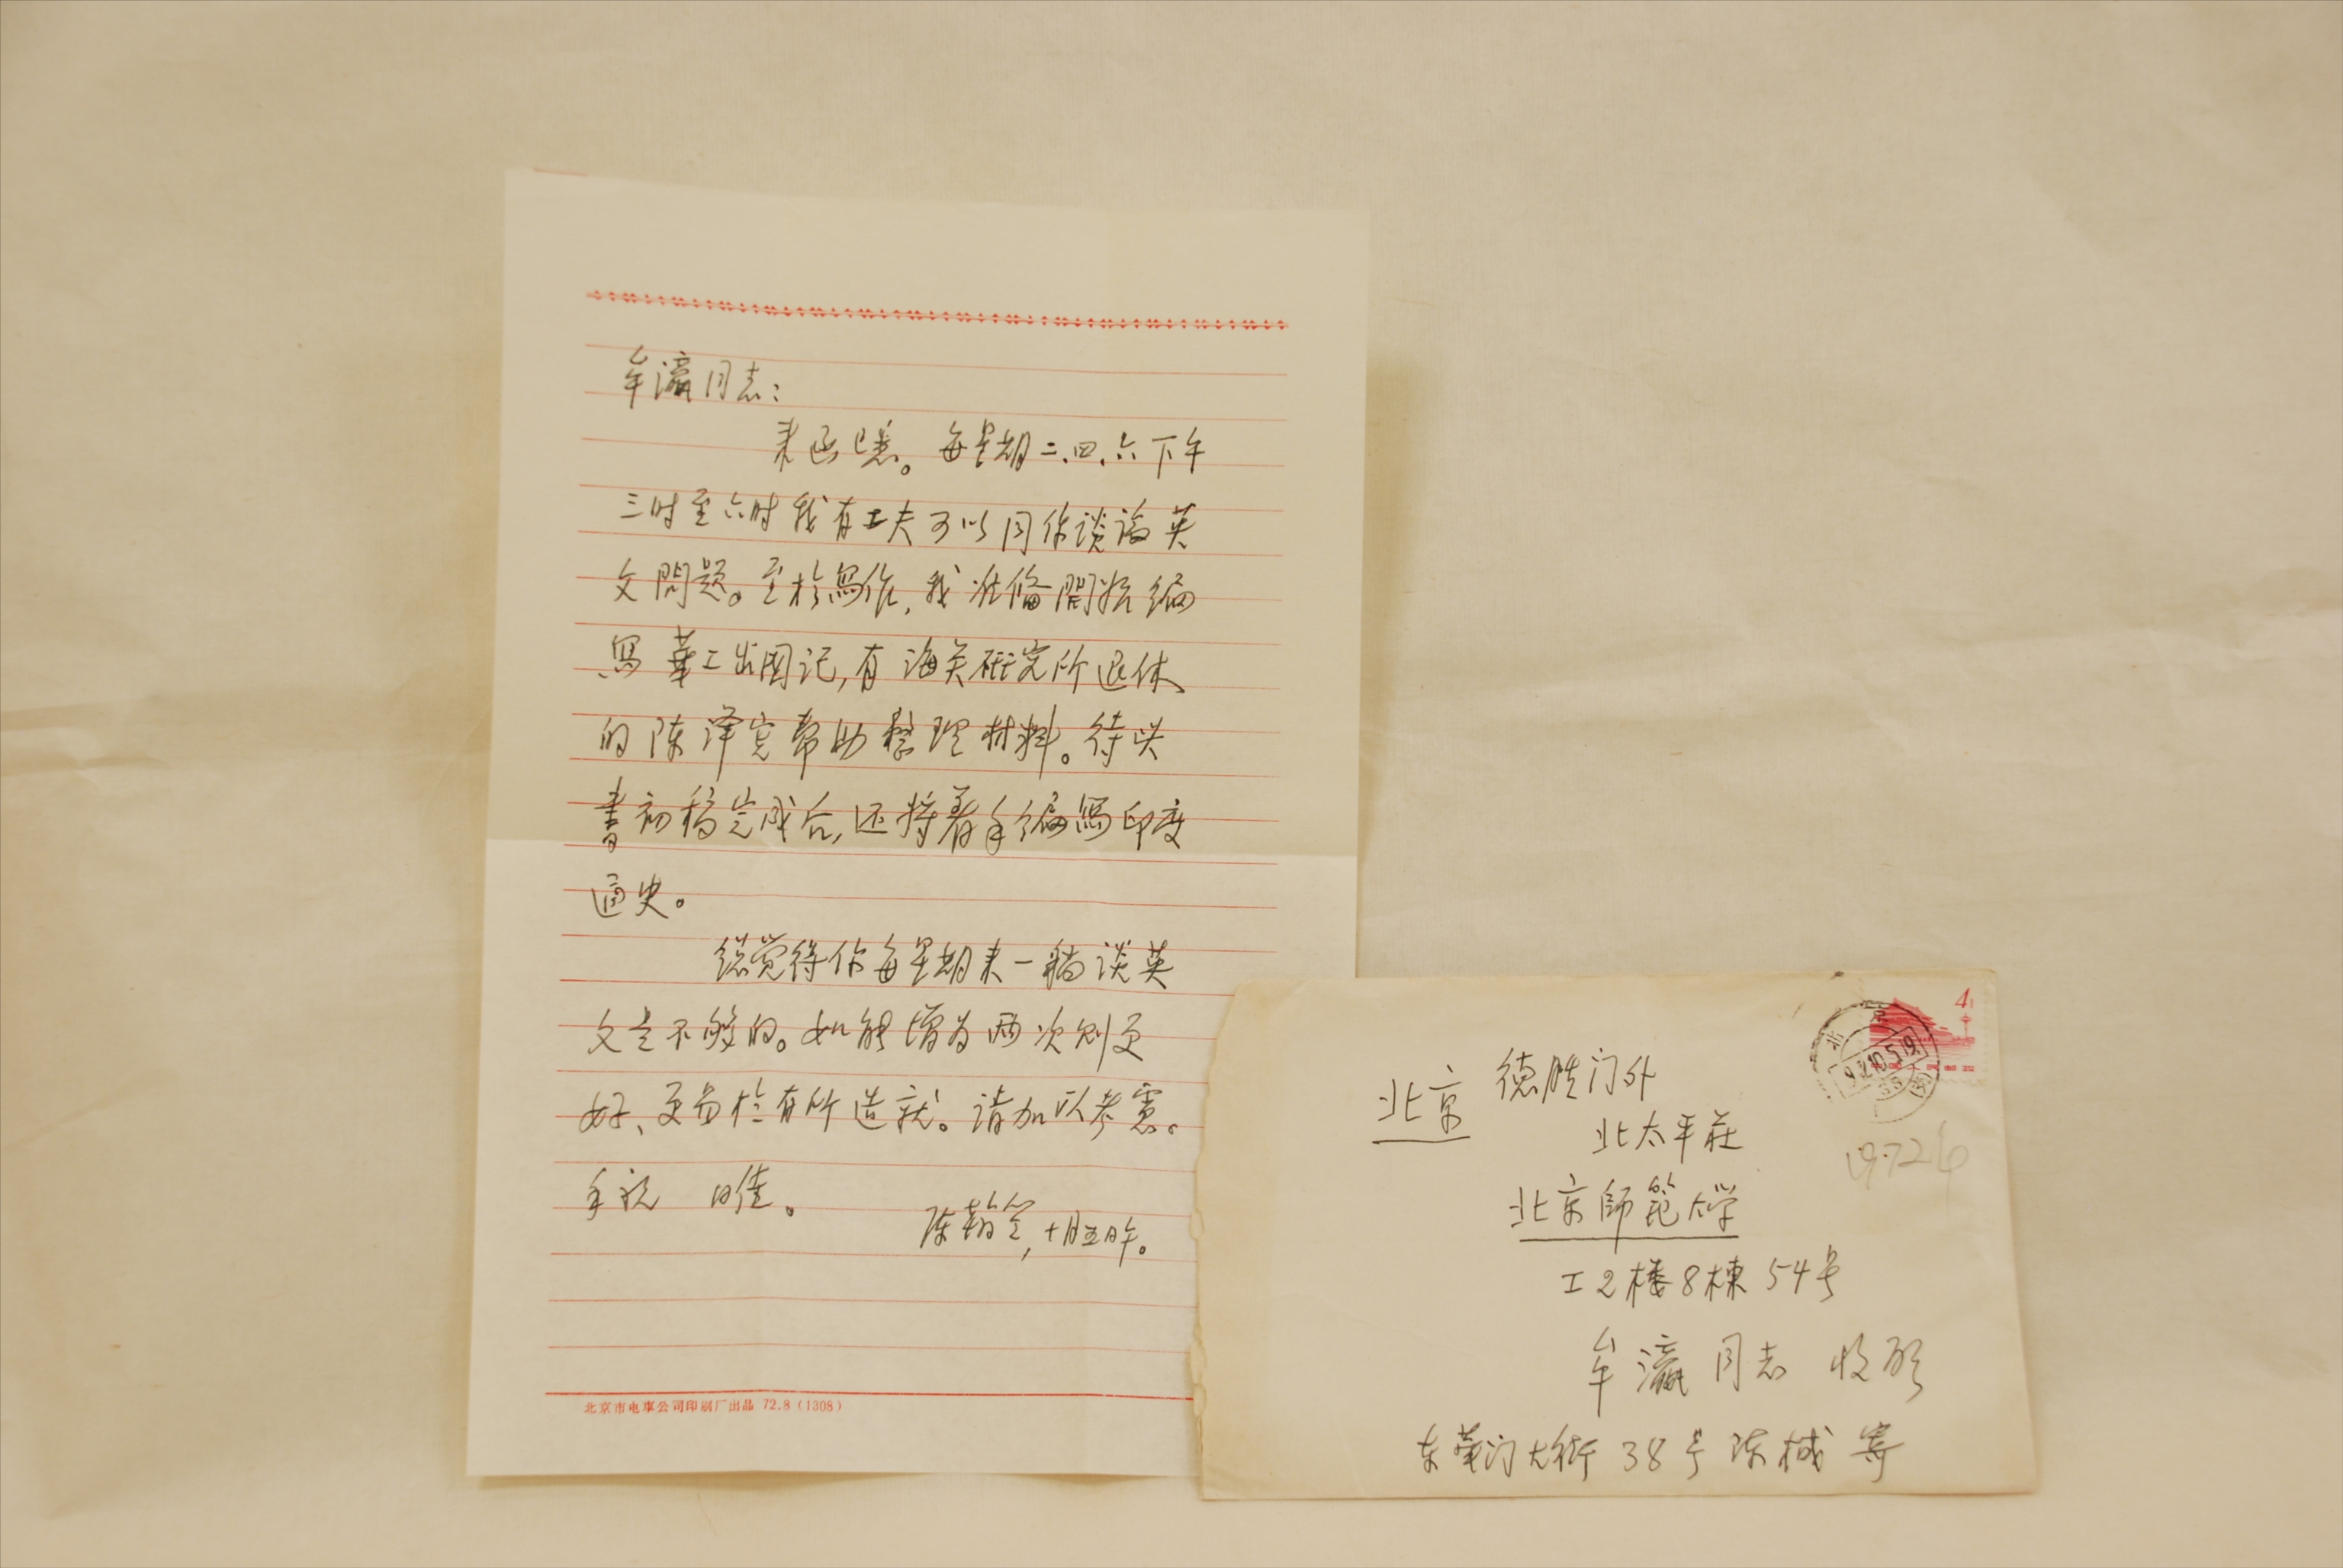 牟瀛同志：
来函已悉。每星期二.四.六下午
三时至六时我有工夫可以同你谈论英
文問题。至於寫作，我准偹開始编
寫華工出国记，有海关研究所退休
的陈泽宪帮助整理材料。待此
書初稿完成后，还将着手编寫印度
通史。
总觉得你每星期来一趟谈英
文是不够的。如能增为两次则更
好、更易於有所造就。请加以考慮。
手祝 日佳。
陈翰笙，十月五日午。
北京市电車公司印刷厂出品 72.8（1308）
4
北京
北京 德胜门外
北太平莊
北京師範大学
工2楼8栋54号
牟瀛同志 收啟
东華门大街38号陈 寄